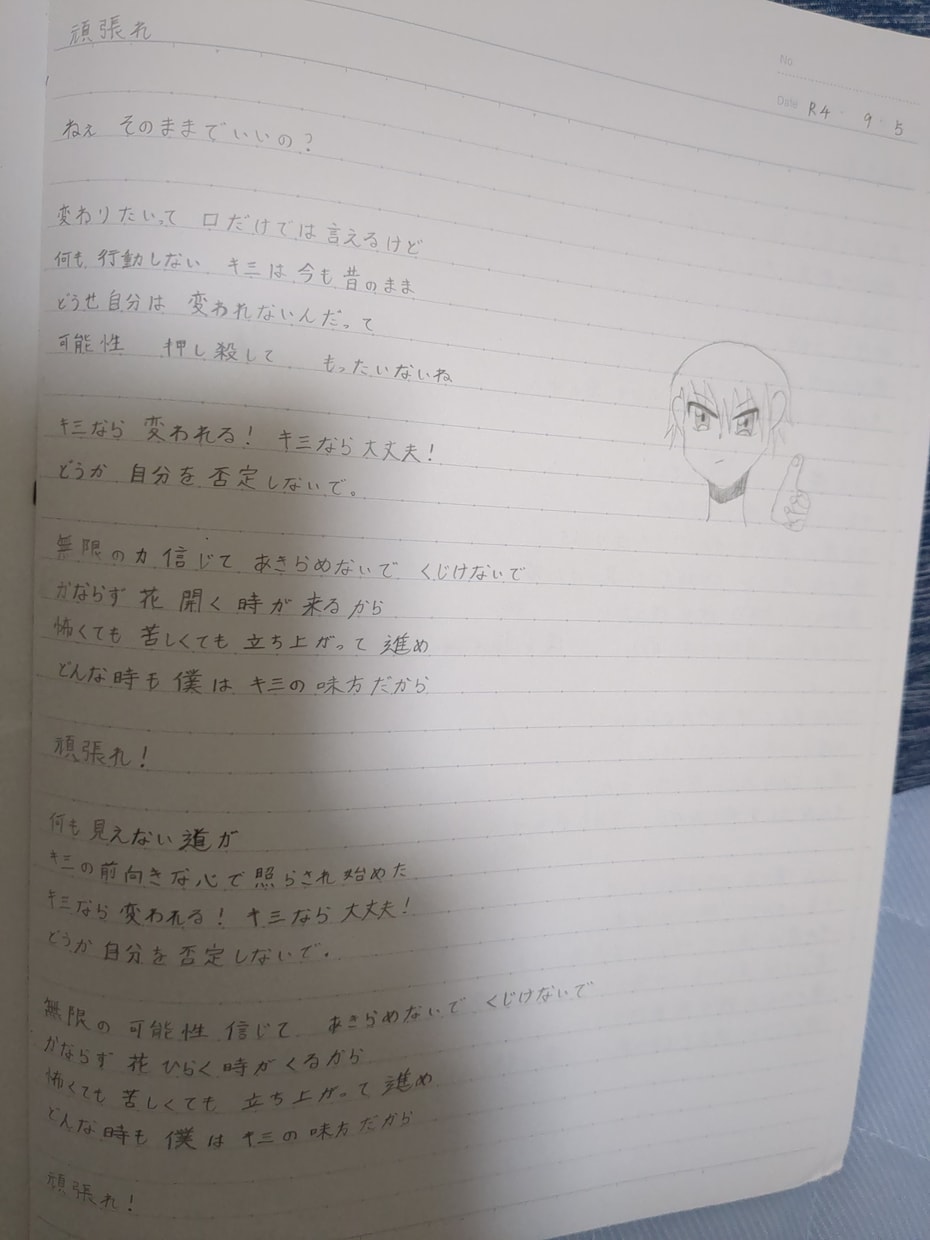 頑張れ
No.
Date R4・9・5
ねぇ そのままでいいの?
変わりたいって 口だけでは言えるけど
何も行動しない キミは今も昔のまま
どうせ自分は 変われないんだって
可能性 押し殺して もったいないね
キミなら 変われる! キミなら大丈夫!
どうか 自分を否定しないで。
無限の力信じて あきらめないで くじけないで
かならず花開く時が来るから
怖くても苦しくても立ち上がって進め
どんな時も僕はキミの味方だから
頑張れ!
何も見えない道が
キミの前向きな心で照らされ始めた
キミなら変われる! キミなら大丈夫!
どうか自分を否定しないで。
無限の可能性信じて あきらめないで くじけないで
かならず花ひらく時がくるから
怖くても苦しくても 立ち上がって進め
どんな時も僕はキミの味方だから
頑張れ!